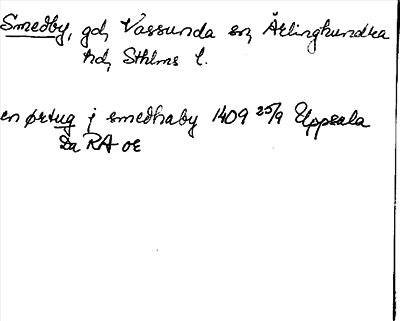 Smedby, gd, Vassunda sn, Ärlinghundra
hd, Sthlms l.
en ørtug j smedhaby 1409 25/9 Uppsala
Da RA oE